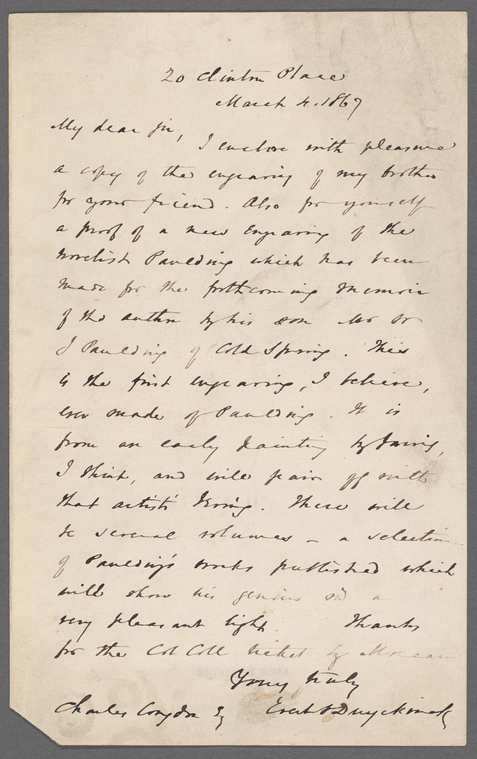 20 Clinton Place
March 4. 1867
My dear Sir,
I enclose with pleasure
a copy of the engraving of my brother
for your friend. Also for yourself
a proof of a new engraving of the
novelist Paulding which has been
made for the forthcoming memoir
of the author by his son Mr W
I Paulding of Cold Spring. This
is the first engraving, I believe,
ever made of Paulding. It is
from an early painting by Jarvis,
I think, and will pair off with
that artist's Irving. There will
be several volumes - a selection
of Paulding's works published which
will show his genius in a
very pleasant light. Thanks
for the Col Coll ticket by
Yours truly
Charles Congdon Esq Evert A Duyckinck